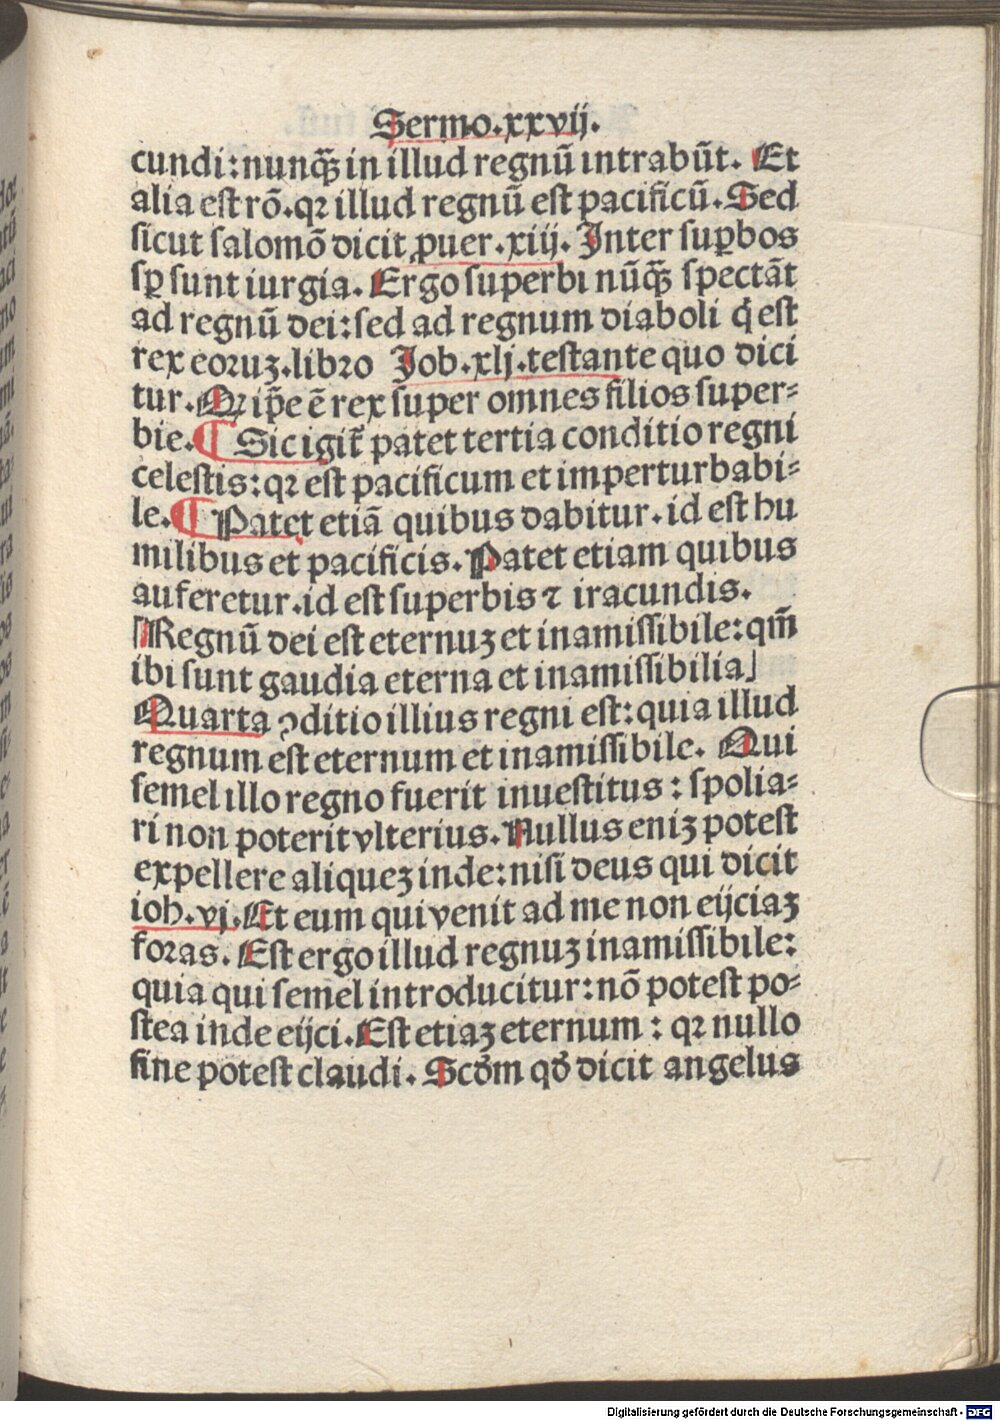 Sermo.xxvij.
cundi:nunq̄ꝫ in illud regnū intrabūt. Et
alia est rō.qꝛ illud regnū est pacificū. Sed
sicut salomō dicit ꝓuer.xiij. Inter suꝑbos
sꝑ sunt iurgia. Ergo superbi nūq̄ꝫ spectāt
ad regnū dei:sed ad regnum diaboli q̇ est
rex eoruꝫ.libro Job.xlj.testante quo dici
tur. Qꝛ ip̄e ē rex super omnes filios super-
bie. ¶ Sic igit̄ patet tertia conditio regni
celestis:qꝛ est pacificum et imperturbabi-
le. ¶ Patet etiā quibus dabitur.id est hu
milibus et pacificis. Patet etiam quibus
auferetur.id est superbis ⁊ iracundis.
[Regnū dei est eternuꝫ et inamissibile:qm̄
ibi sunt gaudia eterna et inamissibilia]
Quarta ꝯditio illius regni est:quia illud
regnum est eternum et inamissibile. Qui
semel illo regno fuerit inuestitus : spolia-
ri non poterit vlterius. Nullus eniꝫ potest
expellere aliqueꝫ inde:nisi deus qui dicit
ioh.vj. Et eum qui venit ad me non eijciaꝫ
foras. Est ergo illud regnuꝫ inamissibile:
quia qui semel introducitur:nō potest po-
stea inde eijci. Est etiaꝫ eternum : qꝛ nullo
fine potest claudi. Scd̄m qd̄ dicit angelus
Digitalisierung gefördert durch die Deutsche Forschungsgemeinschaft - DFG